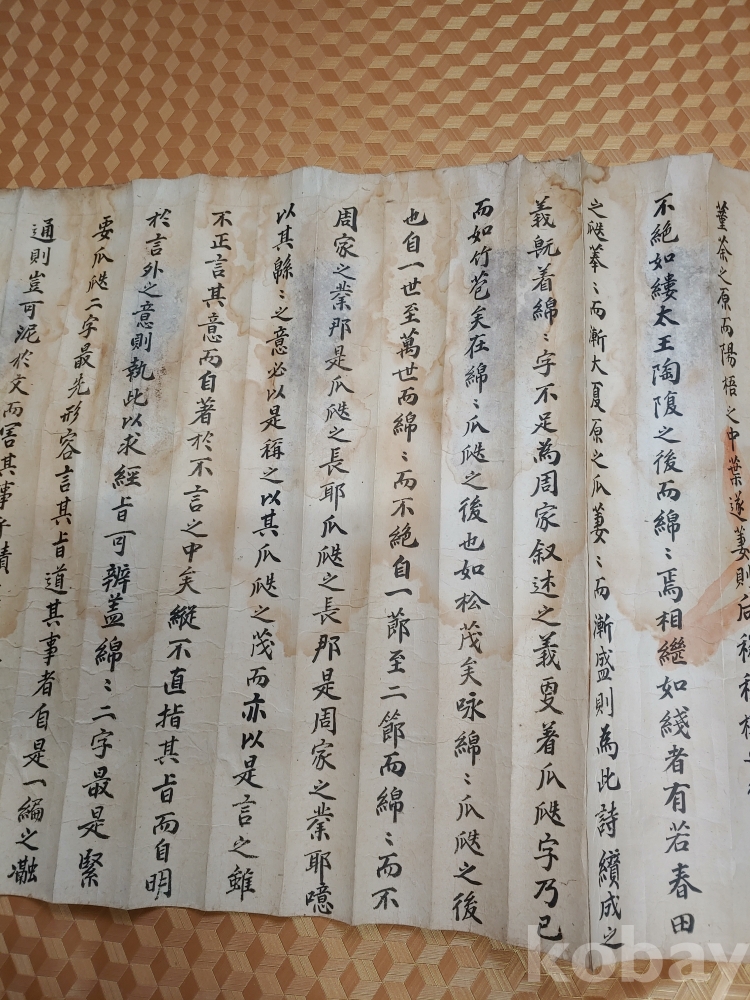 菫荼之原而陽梧之中葉遂萋則后稷
不絶如縷太王陶復之後而綿〻焉相繼如綫者有若春田
之瓞菶〻而漸大夏原之瓜萋〻而漸盛則為此詩纘成之
義旣着綿〻字不足為周家叙述之義更著瓜瓞字乃已
而如竹苞矣在綿〻瓜瓞之後也如松茂矣咏綿〻瓜瓞之後
也自一世至萬世而綿〻而不絶自一節至二節而綿〻而不
周家之業那是瓜瓞之長耶瓜瓞之長那是周家之業耶噫
以其緜〻之意必以是稱之以其瓜瓞之茂而亦以是言之雖
不正言其意而自著於不言之中矣縱不直指其㫖而自明
於言外之意則執此以求經㫖可辨盖綿〻二字最是緊
要瓜瓞二字最先形容言其㫖道其事者自是一編之瀜
通則豈可泥於文而害其事乎
kobay